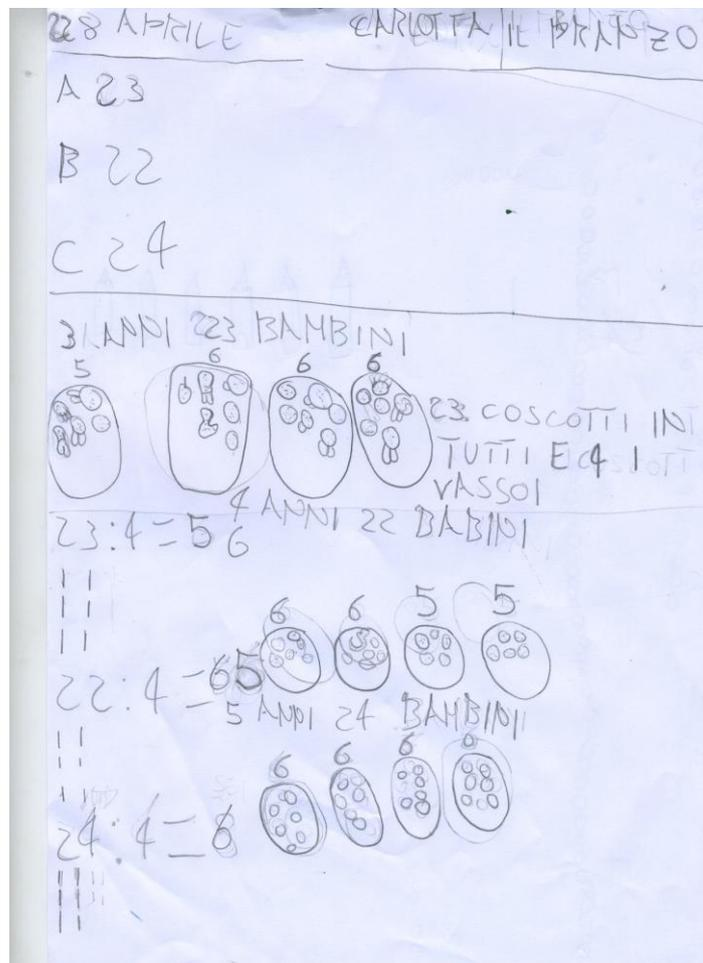 28 APRILE CARLOTTA IL PRANZO
A 23
B 22
C 24
3 ANNI 23 BAMBINI
5 6 6 6
23 COSCOTTI IN
TUTTI E 4 I
VASSOI
4 ANNI 22 BABINI
23:4=5 6
6 6 5 5
22:4=65
5 ANNI 24 BAMBINI
6 6 6 6
24:4=6